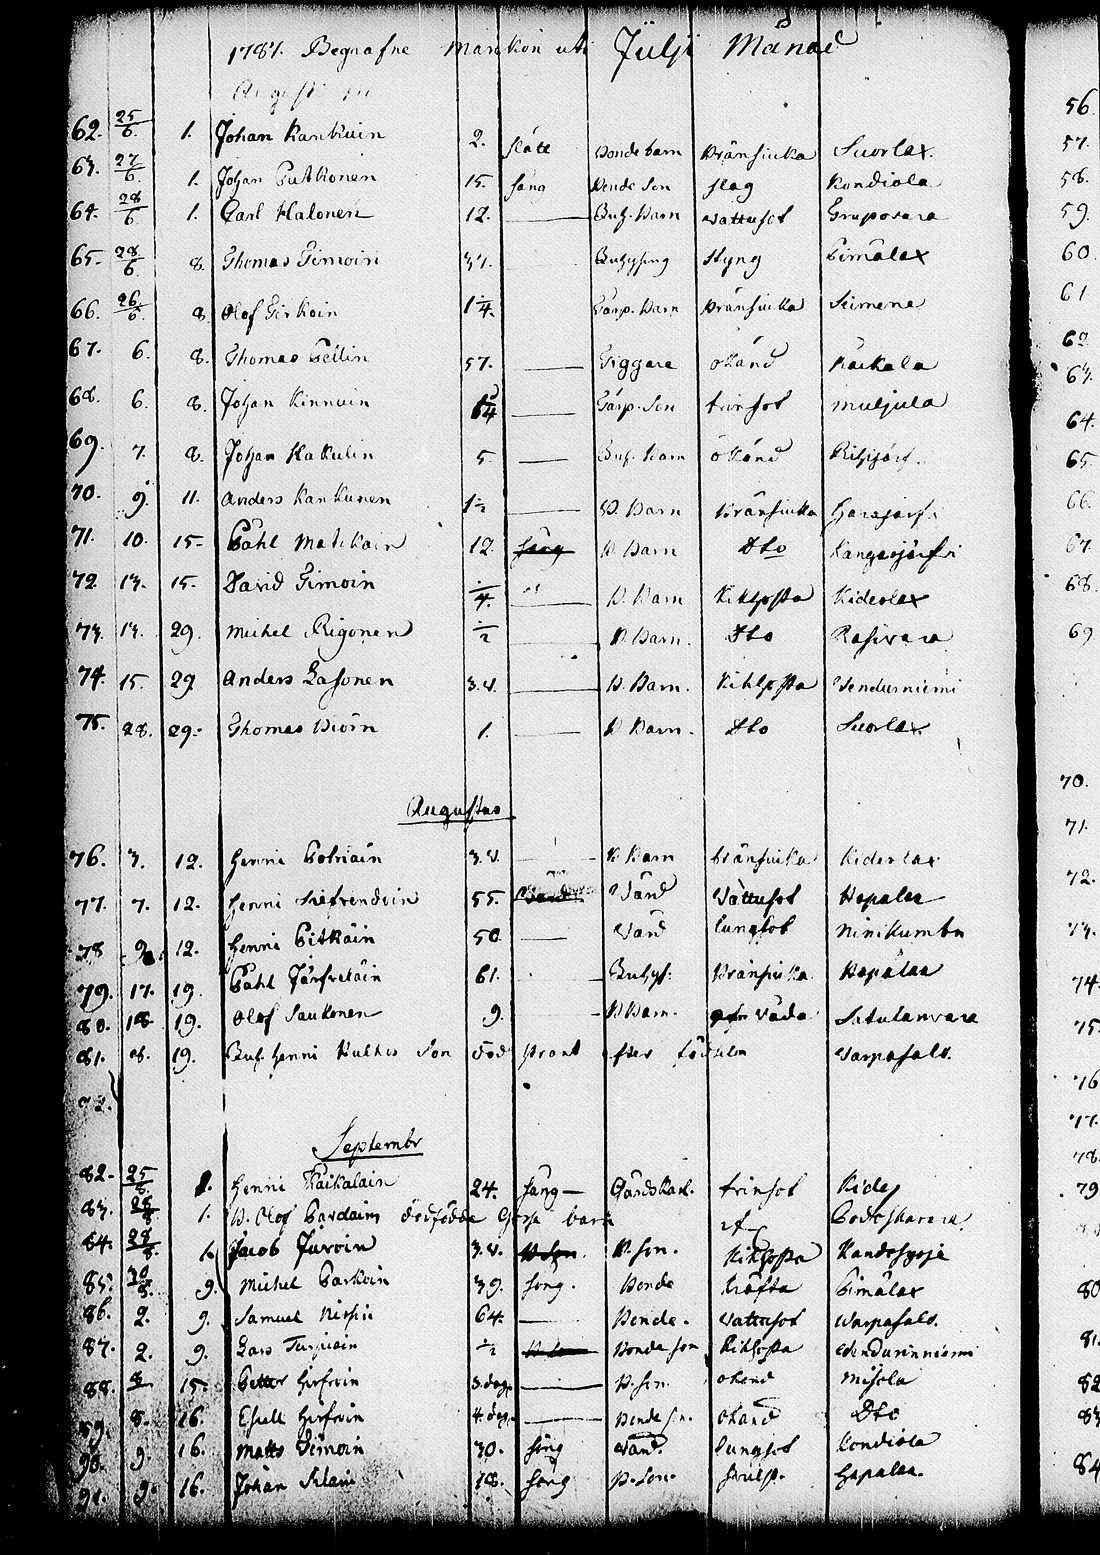 1787. Begrafne Mankön uti Julji Månad
62. 25/6. 1. Johan Kankuin 2. släte Bondebarn Bränsiuka Suorlax.
63. 27/6. 1. Johan Putkonen 15. sång Bonde Son slag Kondiola
64. 28/6 1. Carl Halonen 12. — Buf. Barn Wattusot
65. 28/6. 8. Thomas Timoin 37. styng Pimälax
66. 26/6. 8. Olof Birkoin 1 1/4. Torp. Barn Bränsiuka
67. 6. 8. Thomas Pellin 57. — Tiggare okänd Räckala
68. 6. 8. Johan Kinnuin — Torp. Son trinsot muljula
69. 7. 8. Johan Kakulin 5 — Barn okänd
70. 9. 11. Anders Kankunen 1 1/2 — B. Barn Bränsiuka
71. 10. 15. Påhl Matikain 12. B. Barn Dto Kangasjärfvi
72. 13. 15. David Timoin 1/4. — B. Barn Kikhosta Kiderlax
73. 13. 29. Michel Rigonen 1/2 — B. Barn. Dto Rasivara
74. 15. 29. Anders Lasonen 3.v. — B. Barn. Kikhosta Vendurniemi
75. 28. 29. Thomas Hiuin 1. — B. Barn. Dto Suorlax.
Augustus
76. 3. 12. Henric Potriain 3.v. — B. Barn bränsiuka Kiderlax
77. 7. 12. Henric Siefrendoin 55. Värd Wattusot Hapalax
78 9. 12. Henric Pitkäin 50 — Värd lungsot Ninikumbu
79. 17. 19. Påhl Järfveläin 61. — Bränsiuka Hapalax
80. 18 19. Olof Saukonen 9. — B. Barn. våda Satulanvara
81. 8. 19. Buf. Henric Hulkos Son död strax efter födseln Warpasalo.
72.
Septembr
82. 25/8. 1. Henric Kaikalain 24. sång — Gårdskarl. trinsot Kides
83. 28/8 1. B. Olof Pardains dödfödde gosse barn
84. 28/8. 1. Jacob Juroin 3.v. B. son. Kikhosta
85. 30/8. 9. Michel Parkoin 39. sång. Bonde kräfta Pimälax
86. 2. 9. Samuel 64. — Bonde. Wattusot Warpasalo.
87. 2. 9. Lars Turpiain 1/2 Bonde son Kikhosta Vendurinniemi
88. 8 15. Petter Hirfvoin 3. dag. — B. son. okänd Misola
89. 8. 16. Eskell Hirfvoin 4 dag. — Bonde son. okänd Dto
90. 9. 16. Matts Timoin 30. sång Värd. lungsot Kondiola
91. 9. 16. Johan 18. sång B. son. Hapalax.
56.
57.
58.
59.
60.
61
62.
63.
64.
65.
66.
67.
68.
69
70.
71.
72.
73.
74.
75.
76
77.
78.
79
80
81.
82
83
84